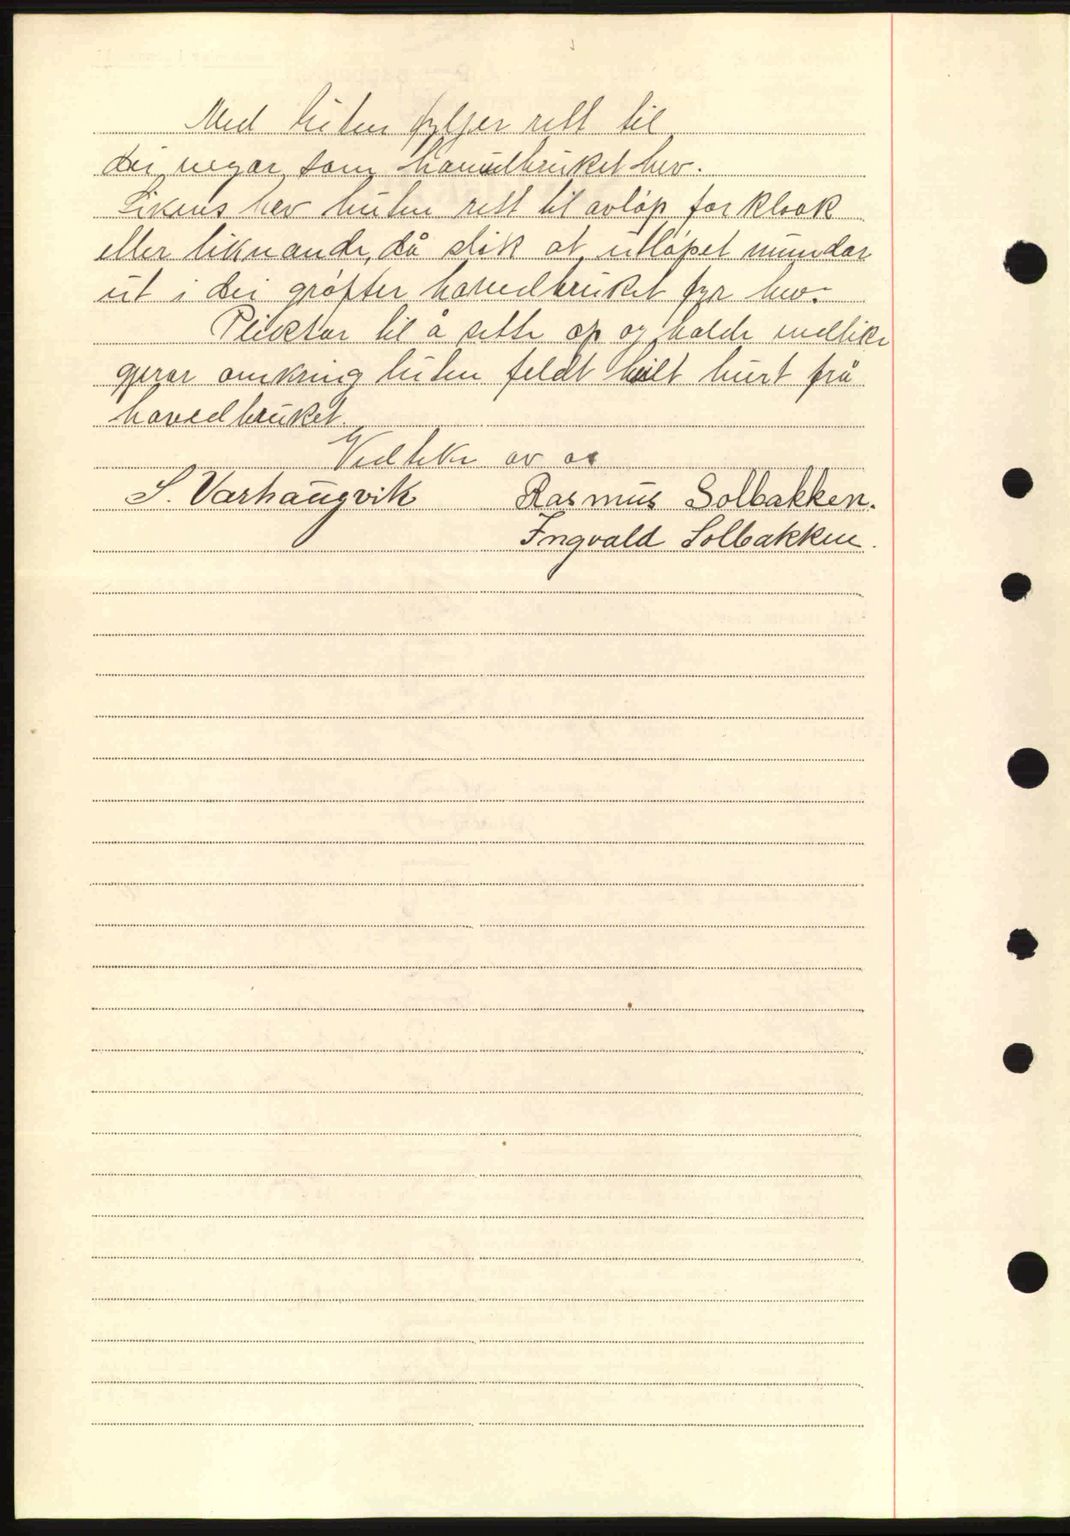 Med luten fylgjer rett til
dei vegar som hovudbruket hev.
Likeins hev luten rett til avløp for kloak
eller liknande, då slik at utløpet mundar
ut i dei grøfter hovedbruket fyr hev.
Pliktar til å sette op og halde vedlike
gjerar omkring luten feldt heilt burt frå
hovedbruket.
Vedteke av os
S. Varhaugvik Rasmus Solbakken.
Ingvald Solbakken.